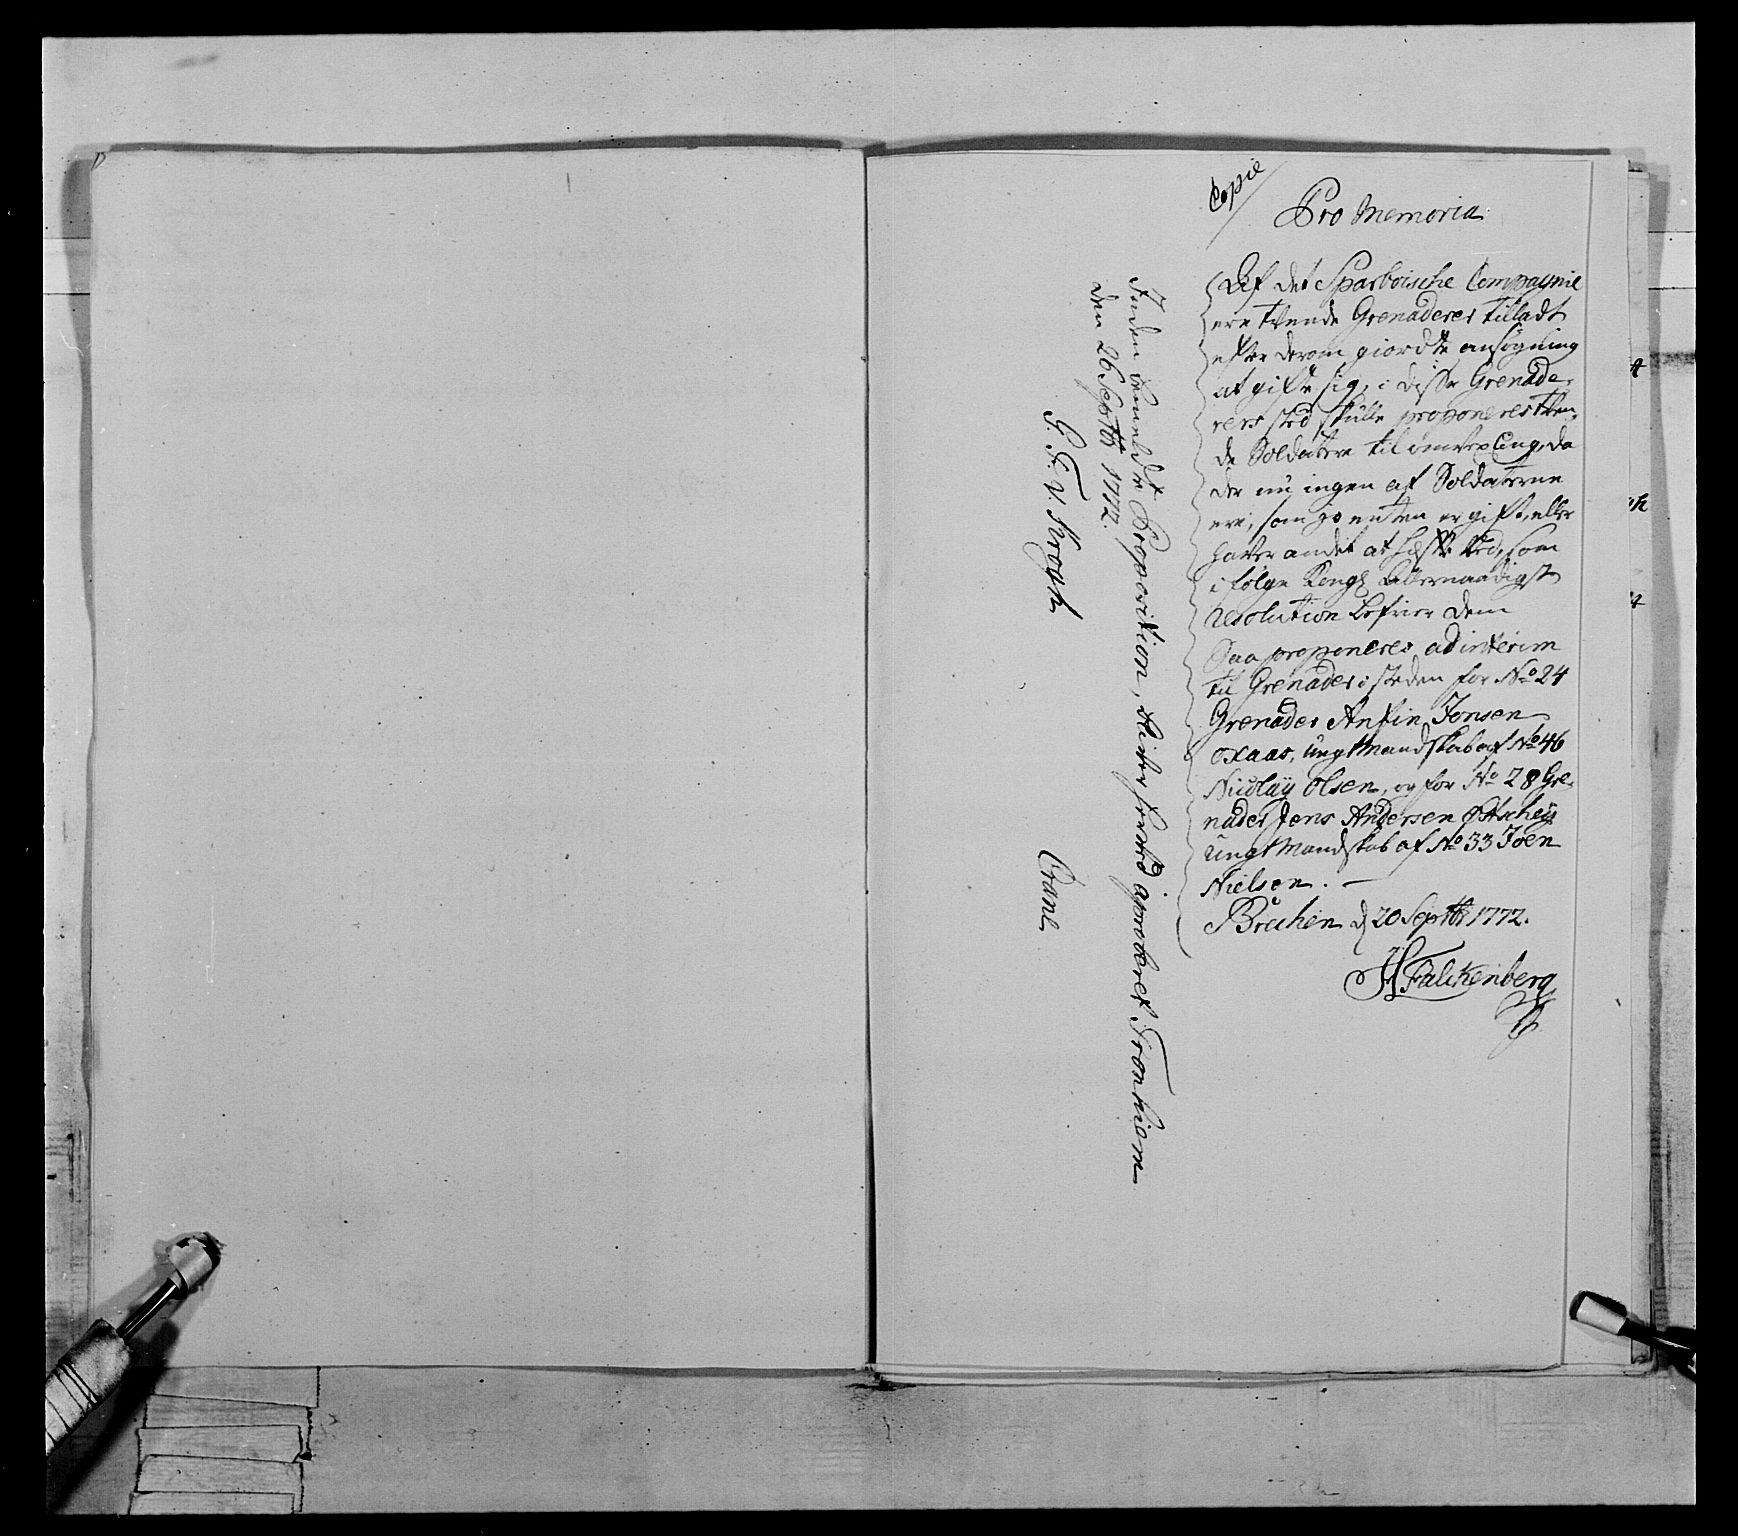 Copie
Pro Memoria
Af det Sparboische Compagnie
ere tvende Grenaderer tilladt
efter derom giordte ansøgning
at gifte sig, i disse Grenade-
rers sted skulle proponeres tven-
de Soldatere til omvexling, da
der nu ingen af Soldaterne
ere, som jo enten er gift, eller
haver andet at hefte ved, som
i følge Kongl Allernaadigst
resolution befrier dem
Saa proponeres ad interim
til Grenader i steden for No 24
Grenader Anfin Jonsen
oxaas, ungt Mandskab af No 46
Nicolaÿ Olsen, og for No 28 Gre-
nader Jens Andersen
ungt Mandskab af No 33 Joen
Nielsen. —
d 20 Septbr 1772.
H Falckenberg
Inden bemeldte Proposition, bliver herved aproberet Tronhiem
den 26 Septbr 1772.
G. F. V. Krogh